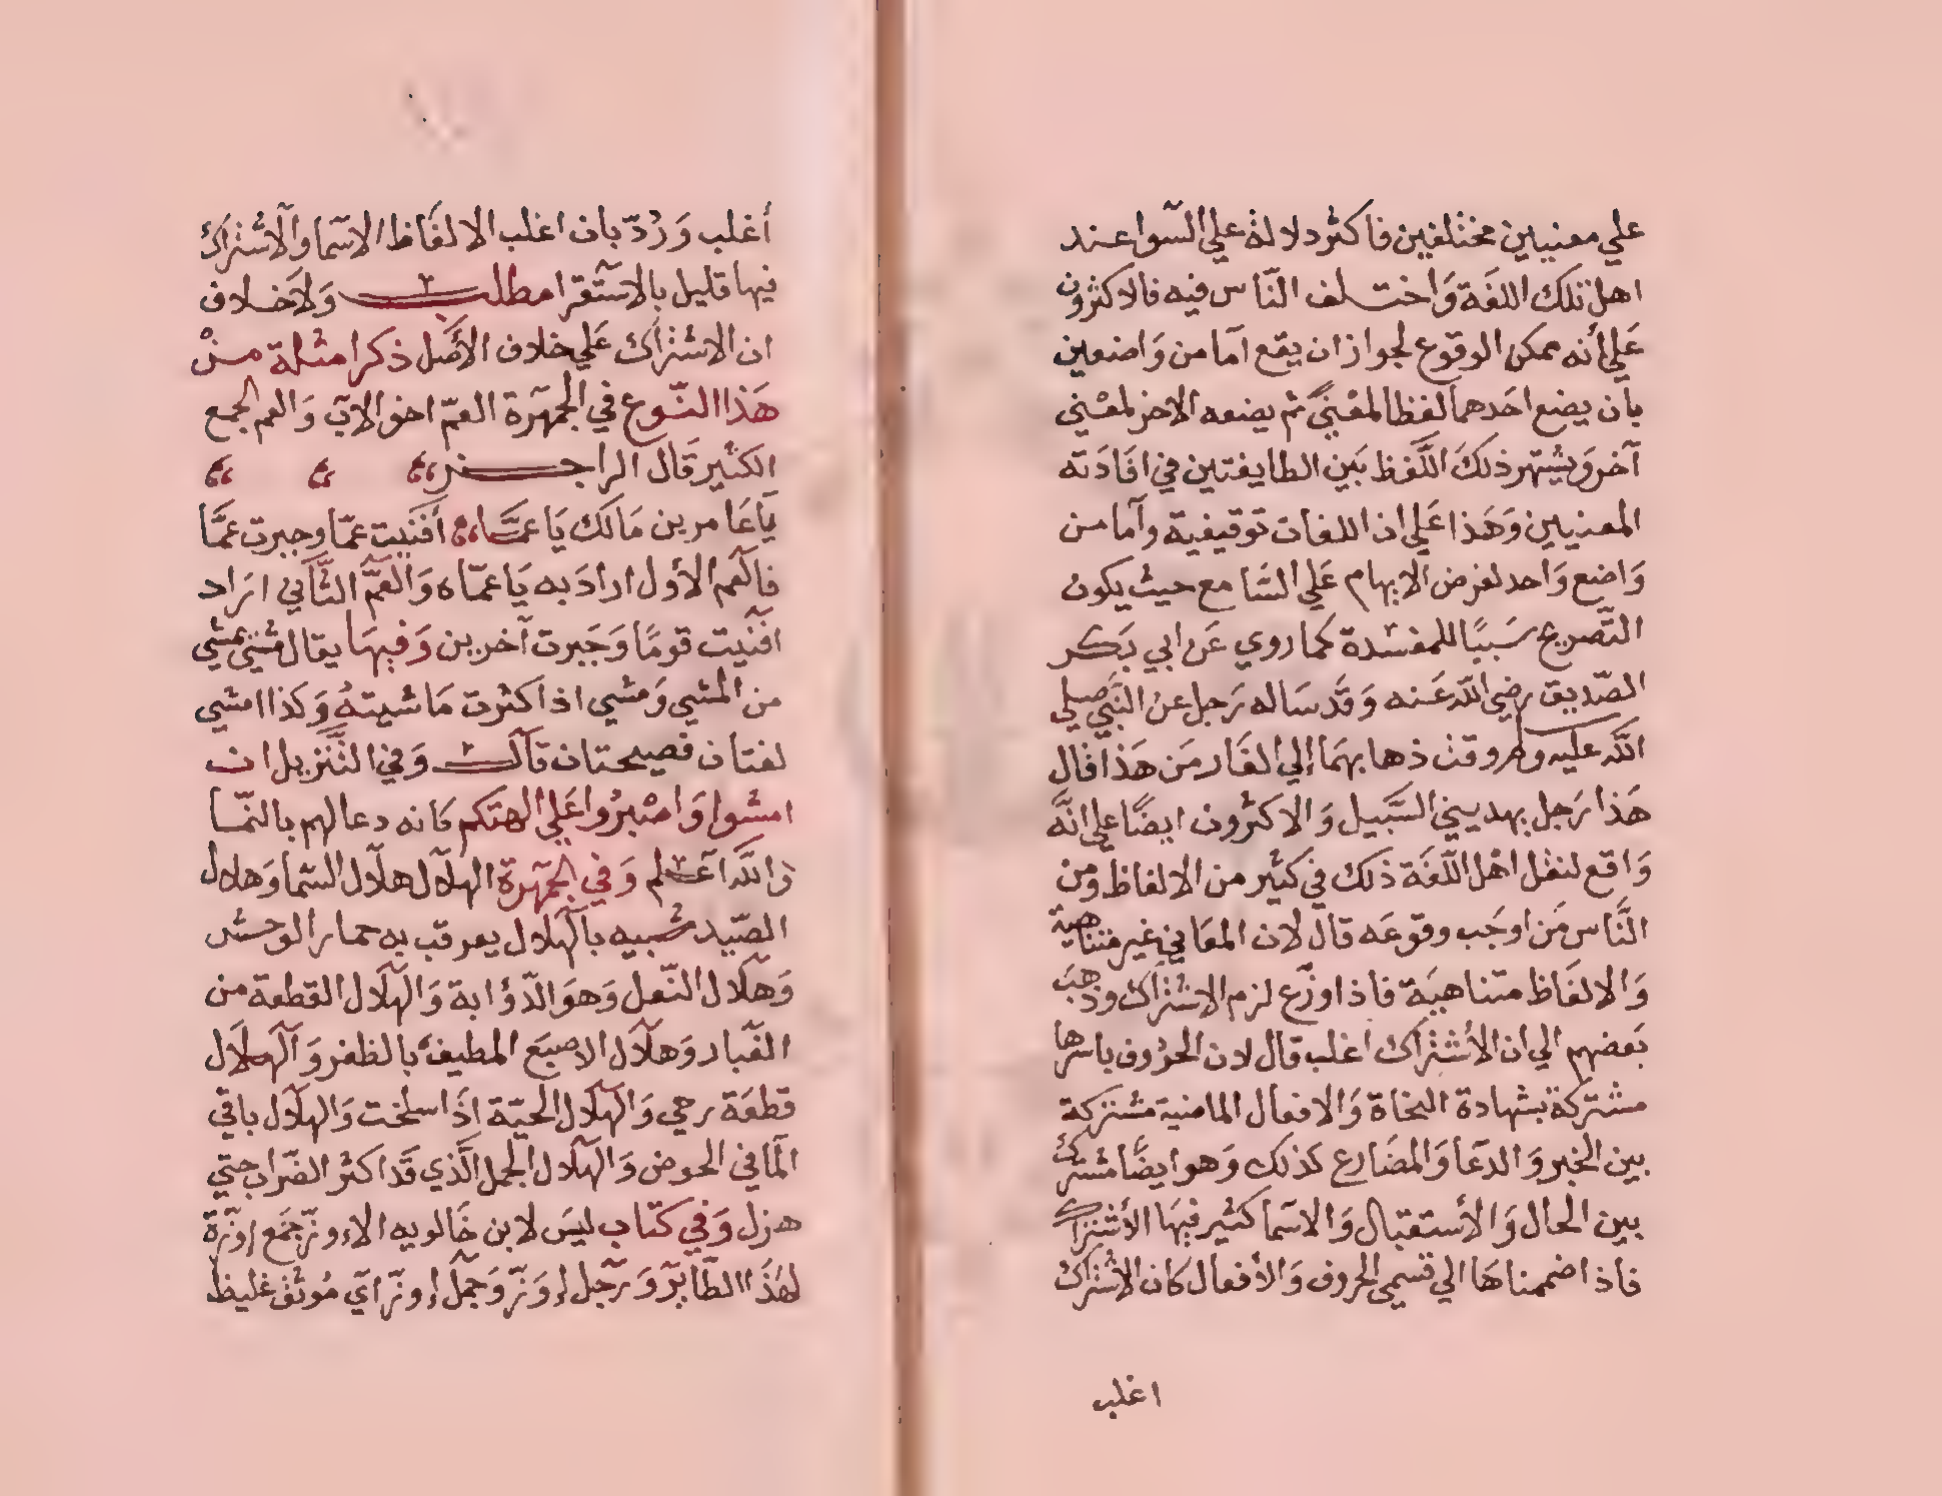 علي معنيين مختلفين فاكثر دلالة علي السّوا عند
اهل تلك اللغَة وَاختلف النّاس فيه فالاكثرون
عَلي أنه ممكن الوقوع لجواز ان يقع امّا من وَاضعين
بان يضع احَدهما لفظا لمعْنيً ثم يضعه الاخر لمعْني
آخر وَيشتهر ذلكَ اللّفظ بَين الطايفتين في افَادَته
المعنيين وَهَذا عَلي ان اللغات توقيفية وامّا من
وَاضع وَاحد لغرض الابهام عَلي السَّامع حيث يكون
التّصريح سَببًا للمفسَدة كما روي عَن ابي بَكر
الصّديق رضي اللّه عَنه وَقَد سَاله رَجل عن النَّبي صلي
اللّه عليه وسلم وقت ذهابهمَا إلي الغَار مَن هَذا قال
هَذا رَجل يهديني السَّبيل وَالاكثرون ايضًا علي انَّه
وَاقع لنقل اهْل اللّغَة ذلك في كثير من الالفاظ ومِنْ
النَّاس مَن اوجَب وقوعَه قال لان المعَاني غير متناهية
وَالالفَاظ متناهيَة فاذا وزّع لزم الاشترَاك وذهَب
بَعضهم الي ان الأشترَاك اغلب قال لان الحرُوف باسرها
مشتركة بشهادة النحاة وَالافعال الماضية مشتركة
بين الخبر وَالدّعا وَالمضَارع كذلك وَهو ايضًا مشترك
بين الحال وَالأستقبال وَالاسَما كثير فيهَا الأشتراك
فاذا ضممناهَا الي قسمي الحروف وَالأفعال كان الاشتراك
اغلب
أغلب وَرُدّ بان اغلب الالفَاظ الاسَما والاشترَاك
فيها قليل بالاستقرا مطلب وَلاَخلاف
ان الاشترَاك عَلي خلاف الأصْل ذكر امثلة منْ
هَذا النّوع في الجمهَرة العمّ اخو الاب وَالعم الجمع
الكثير قَال الراجز
يَا عَامر بن مَالك يَا عمَّا أفنَيت عمّا وجبرت عمَّا
فالعَم الأول ارادَ به يَا عمّاه وَالعَمّ الثّاني ارَاد
افنَيت قومًا وَجَبرت آخرين وَفيهَا يقال مَشي يمشي
من المشي وَمشي اذا كثرت مَاشيتهُ وَكذا امشي
لغتان فصيحتان قالت وَفي التّنزيل ان
امشوا وَاصْبرُوا عَلي الهتكم كَانه دعا لهم بالنّمَا
وَاللّه اعَلم وَفي الجمهَرة الهلاَل هلاَل السّما وَهلال
الصّيد شُبيه بالهلال يعرقب به حمار الوحش
وَهلاَل النّعل وَهوَ الذّؤابة وَالهلاَل القطعة من
الغبَار وَهلاَل الاصبَع المطيف بالظفر وَالهلاَل
قطعَة رحي وَالهلاَل الحيّة اذَا سلخت وَالهلاَل باقي
المَا في الحوض وَالهلاَل الجمل الَّذي قَد اكثر الضّراب حتي
هزل وَفي كتَاب ليسَ لابن خَالويه الاِوزّ جَمَع إوزّة
لهَذَا الطّاير وَرَجل إوَزّ وَجمَل إوزّ اي مُوثق غليظ